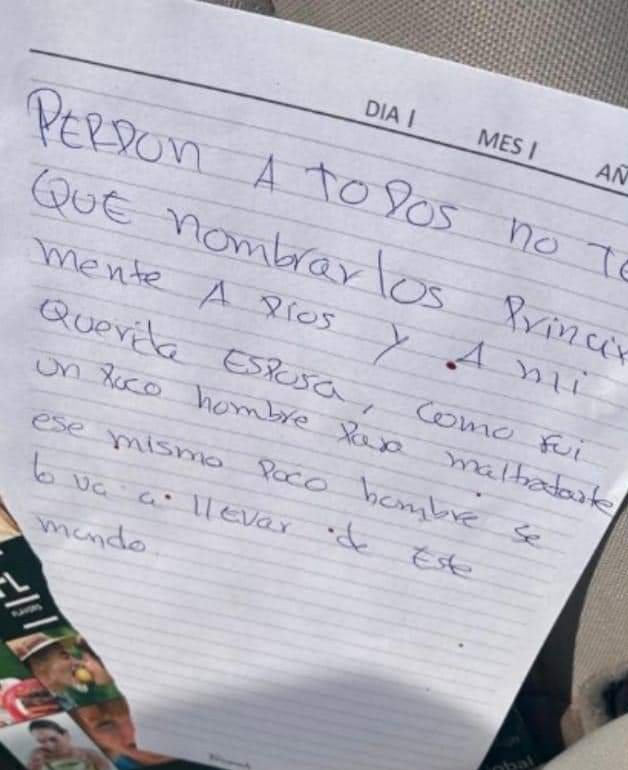 DIA | MES | AÑ
PERDON A TODOS no TE
QUE nombrarlos Princip
mente A Dios Y A mi
Querida Esposa, como fui
un Poco hombre Para maltratarte
ese mismo Poco hombre se
lo va a llevar de Este
mundo.
FLAVORS